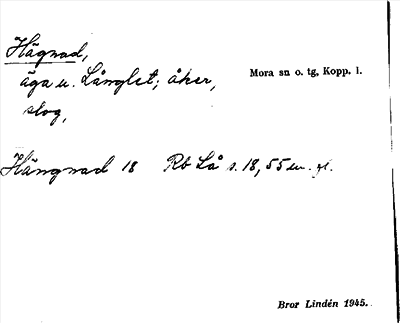 Hägnad,
äga u. Långlet; åker,
slog,
Mora sn o. tg, Kopp. l.
Hängnad 18 Rb Lå s. 18, 55 m. fl.
Bror Lindén 1945.